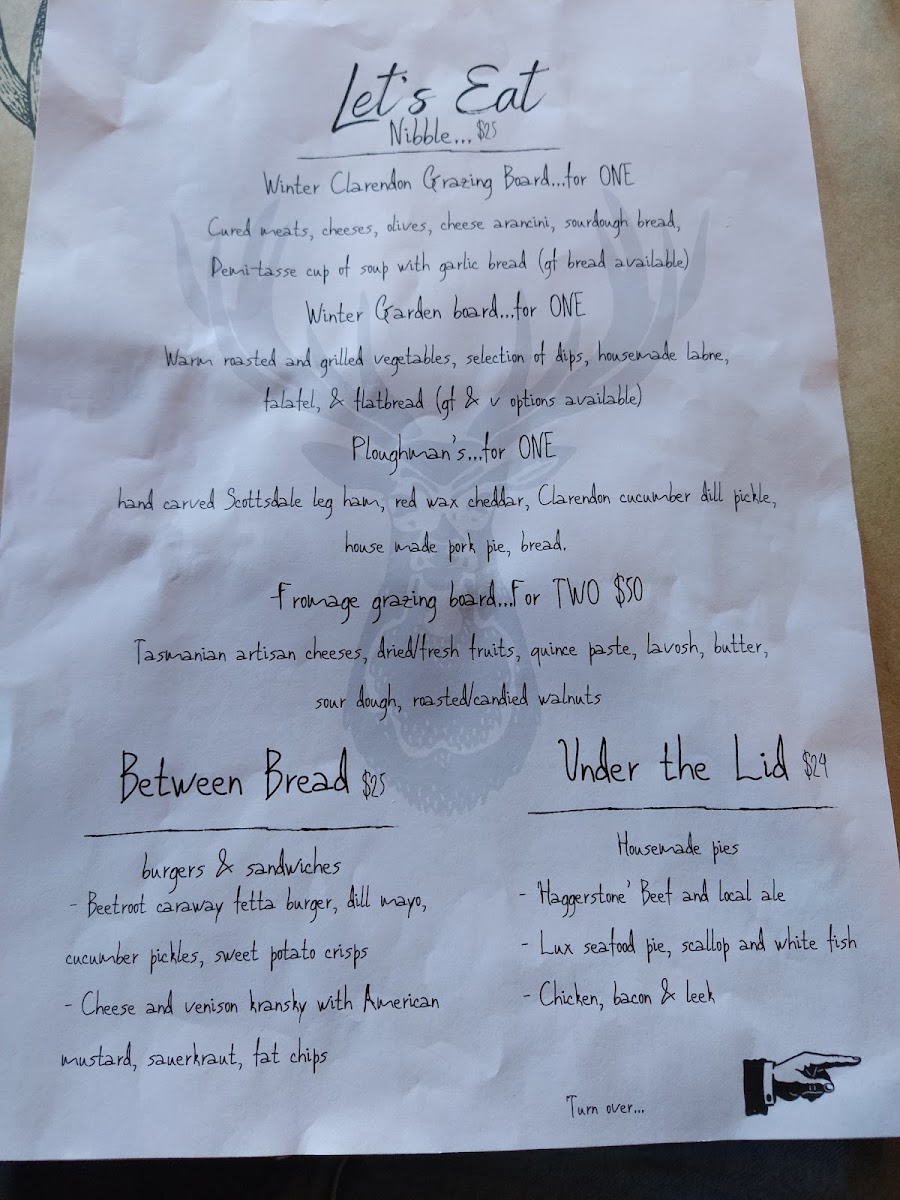 Let's Eat
Nibble... $25
Winter Clarendon Grazing Board...for ONE
Cured meats, cheeses, olives, cheese arancini, sourdough bread,
Demi-tasse cup of soup with garlic bread (gf bread available)
Winter Garden board...for ONE
Warm roasted and grilled vegetables, selection of dips, housemade labne,
falafel, & flatbread (gf & v options available)
Ploughman's...for ONE
hand carved Scottsdale leg ham, red wax cheddar, Clarendon cucumber dill pickle,
house made pork pie, bread.
Fromage grazing board...For TWO $50
Tasmanian artisan cheeses, dried/fresh fruits, quince paste, lavosh, butter,
sour dough, roasted/candied walnuts
Between Bread $25
burgers & sandwiches
- Beetroot caraway fetta burger, dill mayo,
cucumber pickles, sweet potato crisps
- Cheese and venison kransky with American
mustard, sauerkraut, fat chips
Under the Lid $24
Housemade pies
- 'Haggerstone' Beef and local ale
- Lux seafood pie, scallop and white fish
- Chicken, bacon & leek
Turn over...